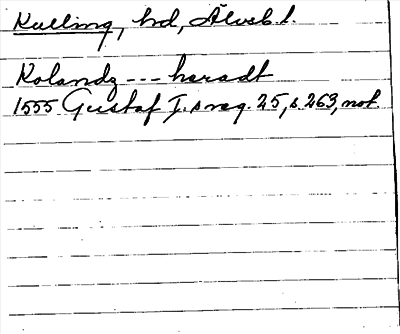 Kulling, hd, Älvsb. l.
Kolandz --- haradt
1555 Gustaf I:s reg. 25, s. 263, not.